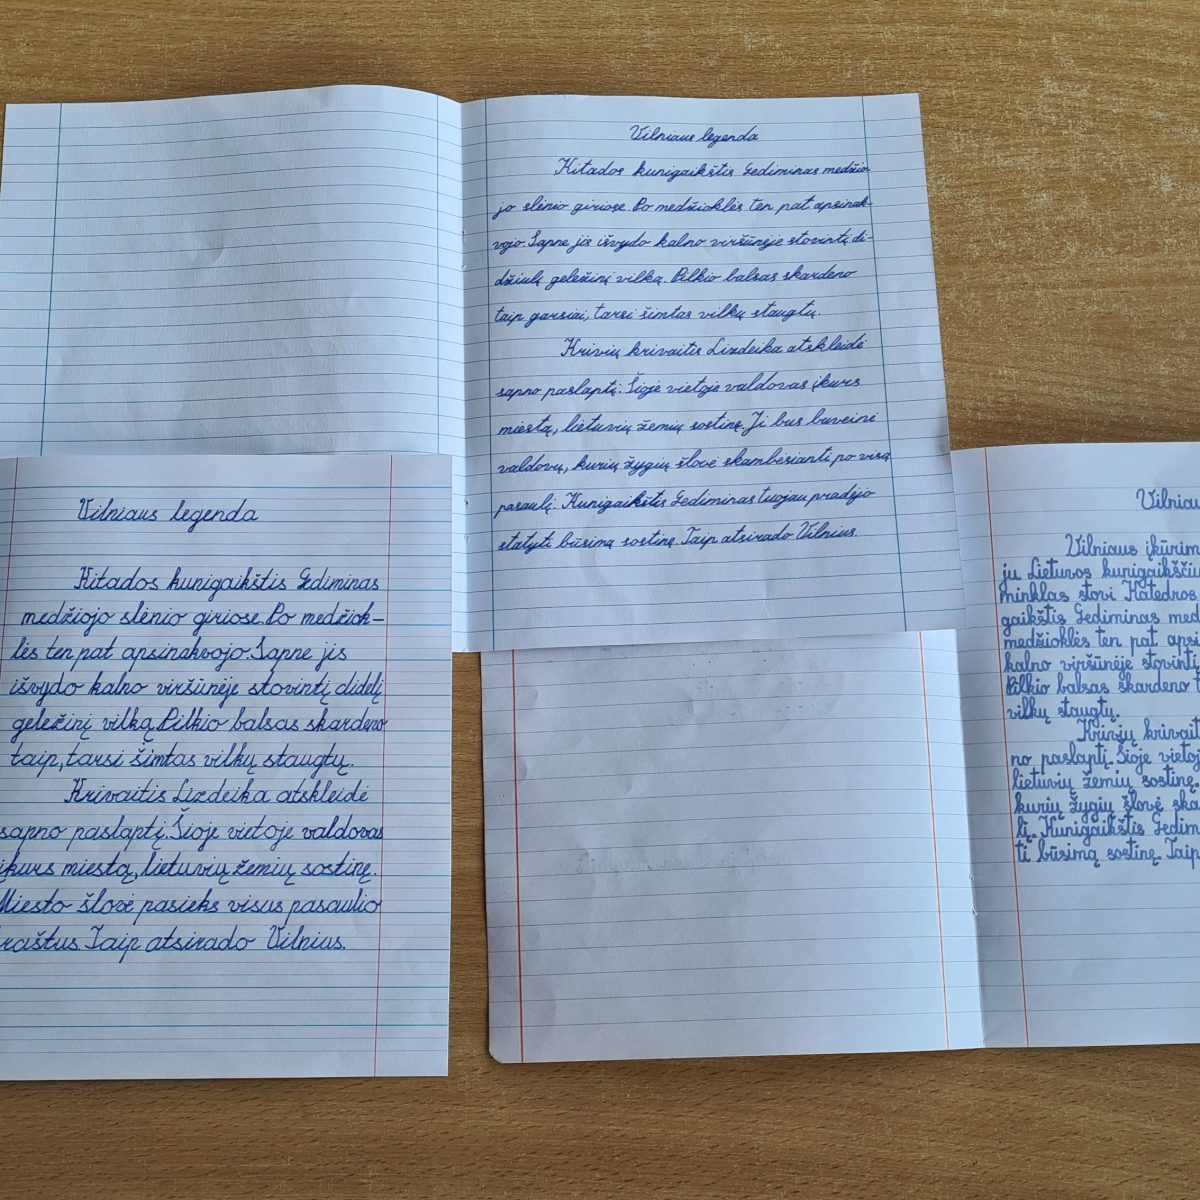 Vilniaus legenda
Kitados kunigaikštis Gediminas medžio-
jo slėnio giriose. Po medžioklės ten pat apsinak-
vojo. Sapne jis išvydo kalno viršūnėje stovintį di-
džiulį geležinį vilką. Pilkio balsas skardeno
taip garsiai, tarsi šimtas vilkų staugtų.
Krivių krivaitis Lizdeika atskleidė
sapno paslaptį. Šioje vietoje valdovas įkurs
miestą, lietuvių žemių sostinę. Ji bus buveinė
valdovų, kurių žygių šlovė skambėsianti po visą
pasaulį. Kunigaikštis Gediminas tuojau pradėjo
statyti būsimą sostinę. Taip atsirado Vilnius.
Vilniaus legenda
Kitados kunigaikštis Gediminas
medžiojo slėnio giriose. Po medžiok-
lės ten pat apsinakvojo. Sapne jis
išvydo kalno viršūnėje stovintį didelį
geležinį vilką. Pilkio balsas skardeno
taip, tarsi šimtas vilkų staugtų.
Krivaitis Lizdeika atskleidė
sapno paslaptį. Šioje vietoje valdovas
įkurs miestą, lietuvių žemių sostinę.
Miesto šlovė pasieks visus pasaulio
kraštus. Taip atsirado Vilnius.
Vilniau
Vilniaus įkūrim
ju Lietuvos kunigaikščiu
minklas stovi Katedros
gaikštis Gediminas med
medžioklės ten pat apsi
kalno viršūnėje stovintį
Pilkio balsas skardeno t
vilkų staugtų.
Krivių krivait
no paslaptį. Šioje vietoj
lietuvių žemių sostinę.
kurių žygių šlovė ska
lį. Kunigaikštis Gedim
ti būsimą sostinę. Taip